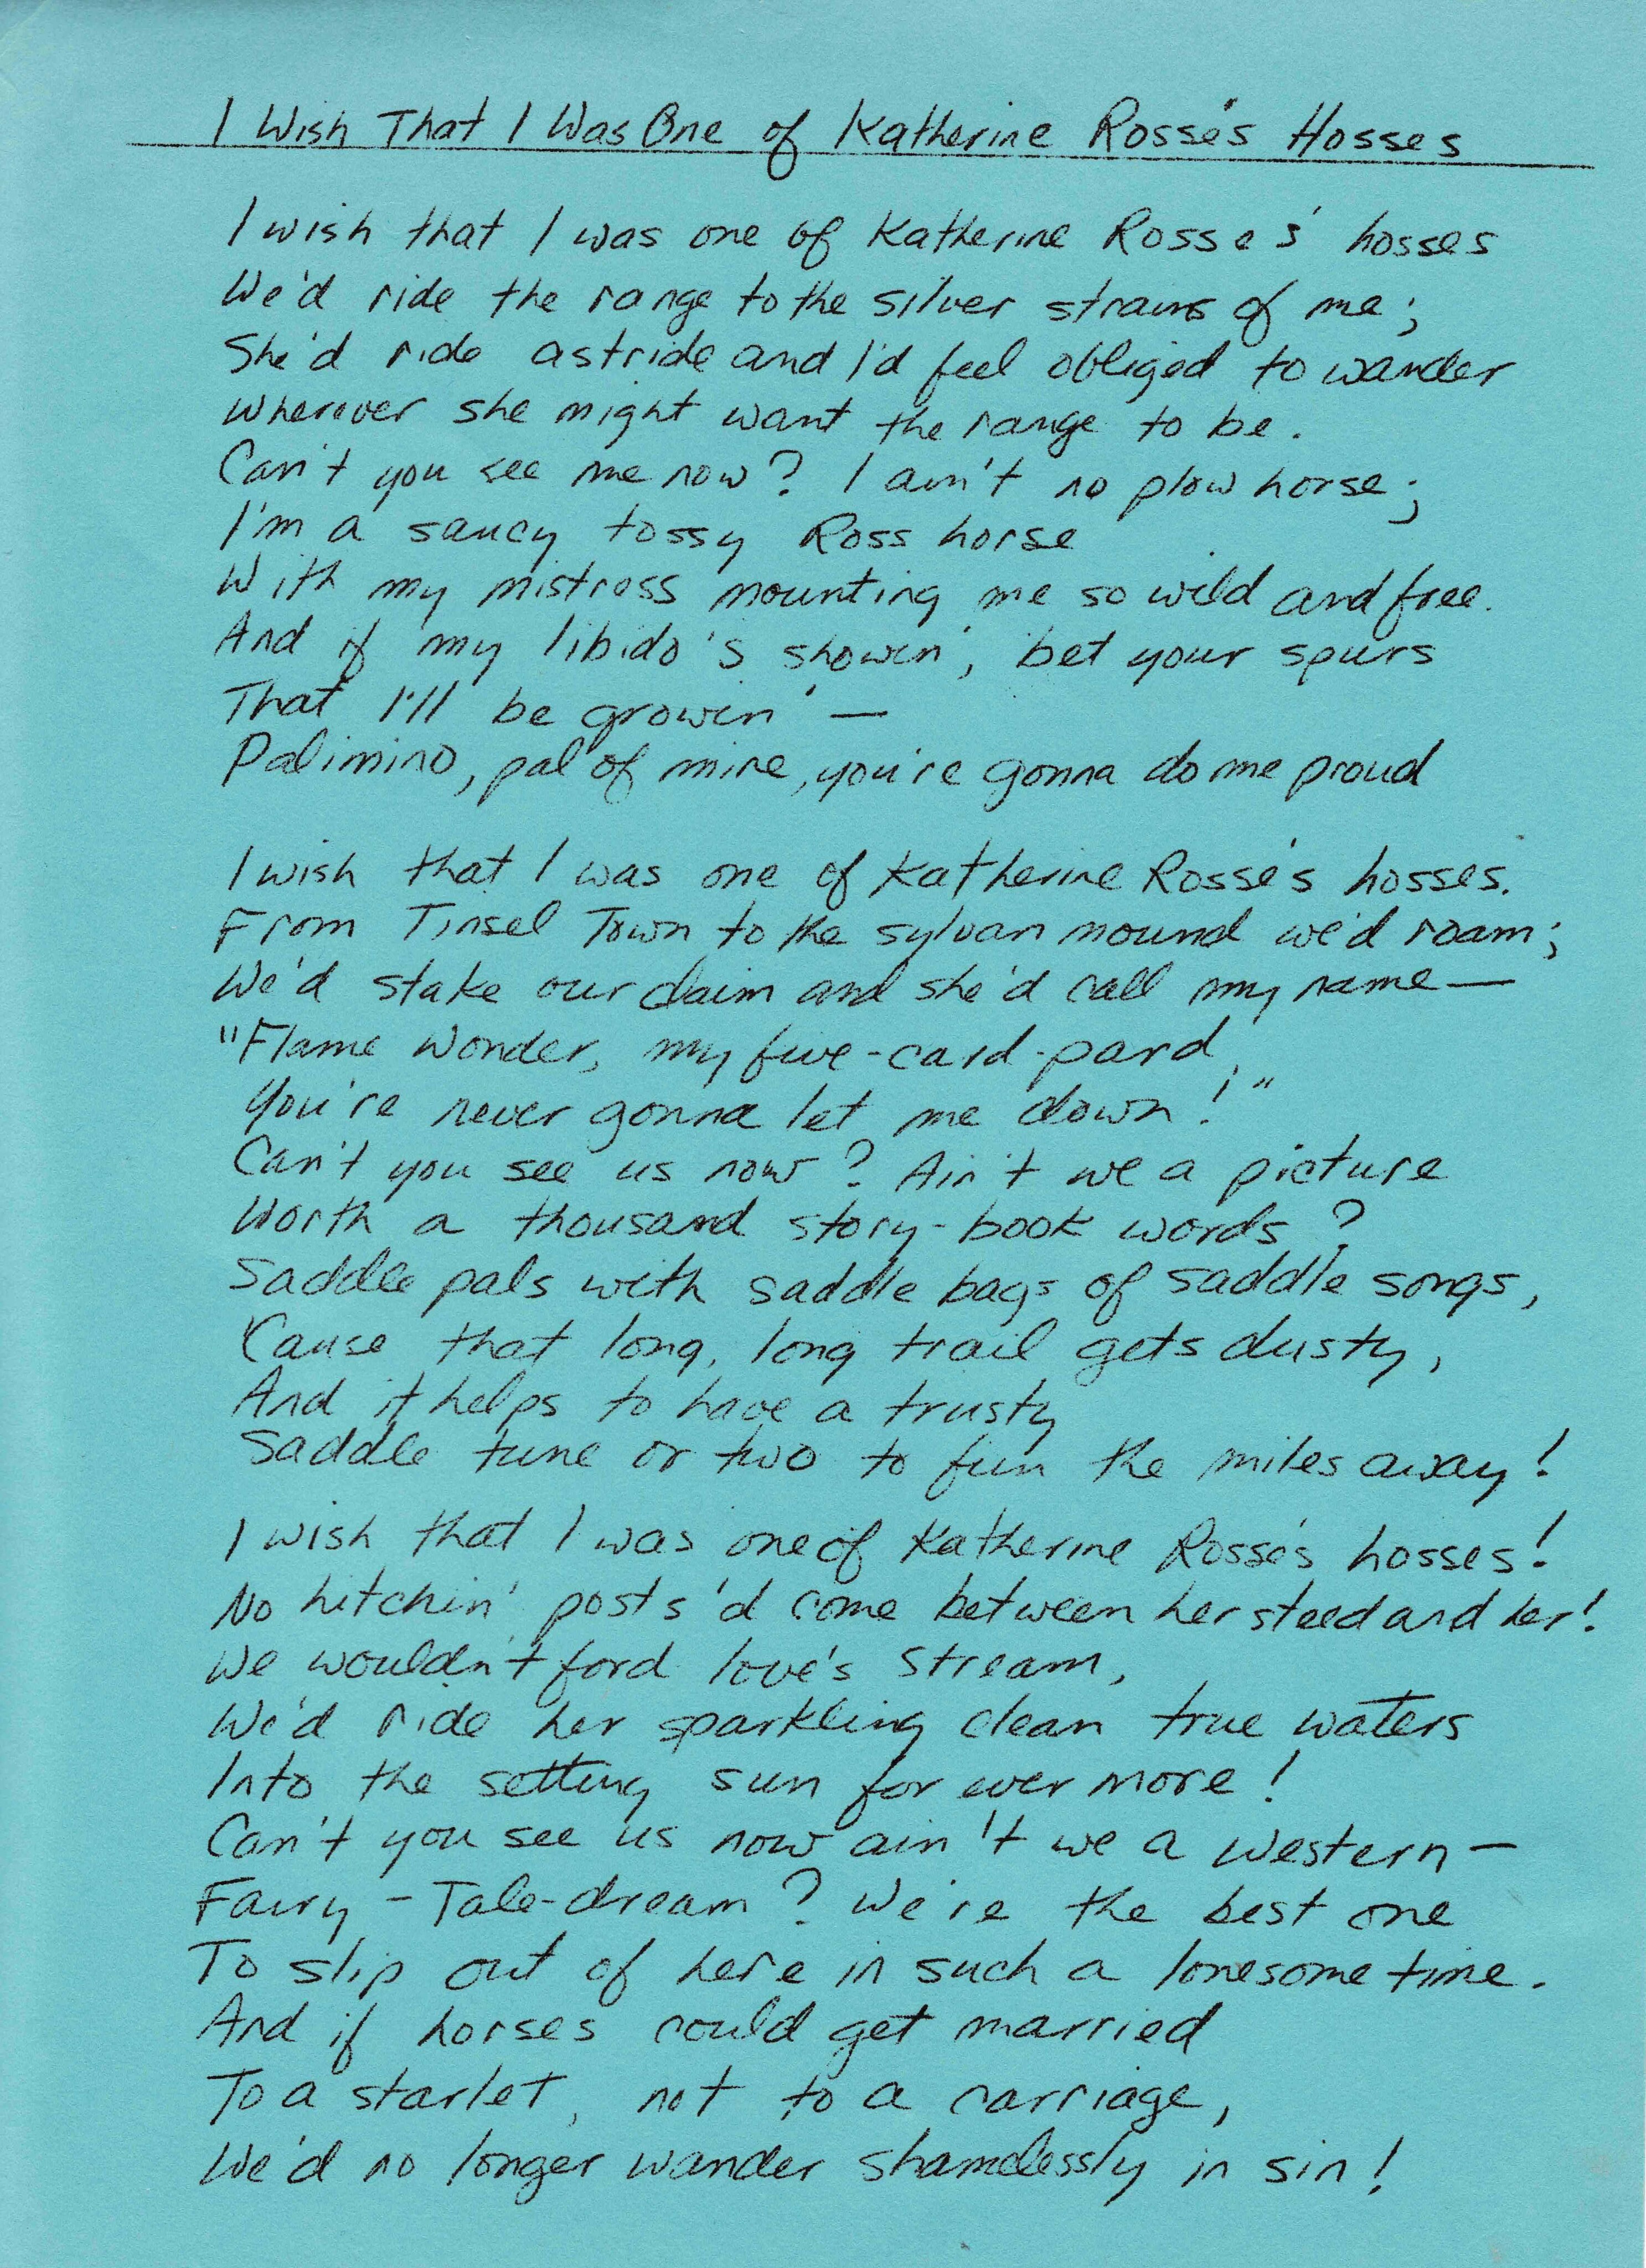 I Wish That I Was One of Katherine Rosse's Hosses
I wish that I was one of Katherine Rosses' hosses
We'd ride the range to the silver strains of me;
She'd ride astride and I'd feel obliged to wander
Wherever she might want the range to be.
Can't you see me now? I ain't no plow horse;
I'm a saucy tossy Ross horse
With my mistress mounting me so wild and free.
And if my libido's showin', bet your spurs
That I'll be growin' —
Palimino, pal of mine, you're gonna do me proud
I wish that I was one of Katherine Rosse's hosses.
From Tinsel Town to the sylvan mound we'd roam;
We'd stake our claim and she'd call my name —
"Flame Wonder, my five-card-pard,
You're never gonna let me down!"
Can't you see us now? Ain't we a picture
Worth a thousand story-book words?
Saddle pals with saddle bags of saddle songs,
'Cause that long, long trail gets dusty,
And it helps to have a trusty
Saddle tune or two to fun the miles away!
I wish that I was one of Katherine Rosse's hosses!
No hitchin' posts'd come between her steed and her!
We wouldn't ford love's stream,
We'd ride her sparkling clean true waters
Into the setting sun for ever more!
Can't you see us now ain't we a Western-
Fairy-Tale-dream? We're the best one
To slip out of here in such a lonesome time.
And if horses could get married
To a starlet, not to a carriage,
We'd no longer wander shamelessly in sin!